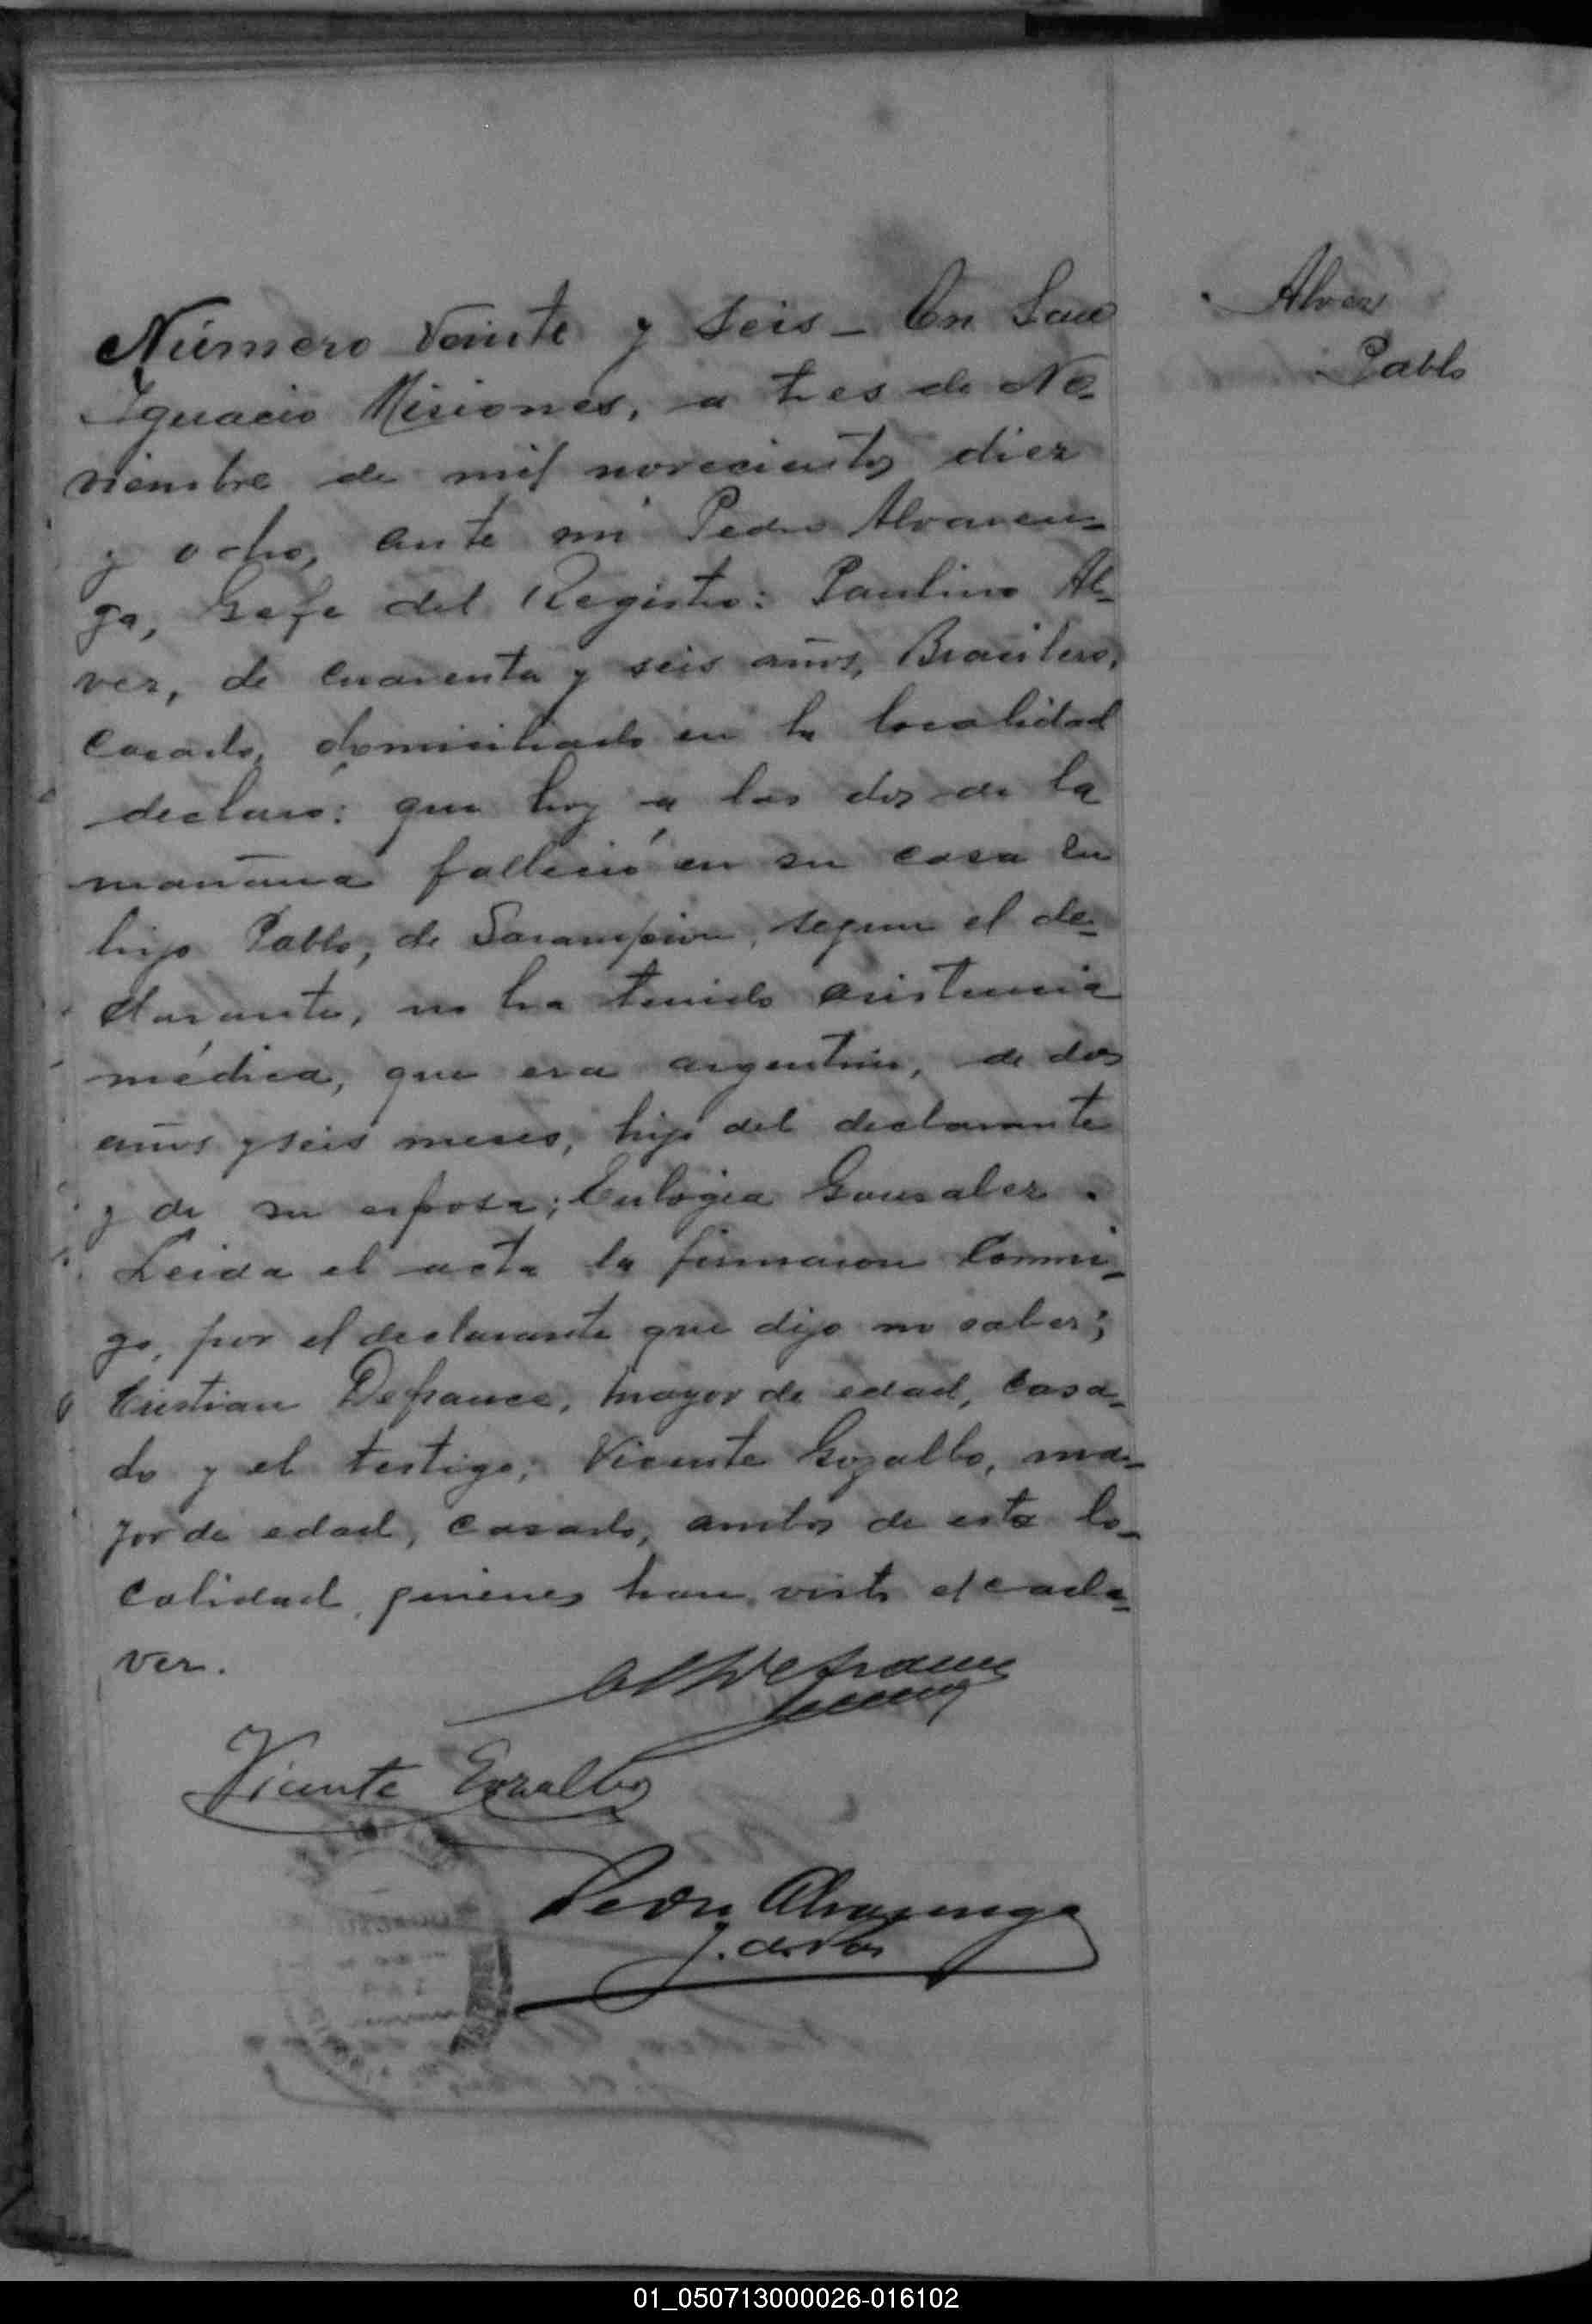 Alvez
Pablo
Número Veinte y Seis - En San
Ignacio Misiones, a tres de No-
viembre de mil novecientos diez
y ocho, ante mi Pedro Alvaren-
ga, Gefe del Registro: Paulino Al-
vez, de cuarenta y seis años, Brasilero,
casado, domiciliado en la localidad
declaró: que hoy a las dos de la
mañana falleció en su casa su
hijo Pablo, de Sarampion, segun el de-
clarante, no ha tenido asistencia
médica, que era argentino, de dos
años y seis meses, hijo del declarante
y de su esposa; Eulogia Gonsalez.
Leida el acta la firmaron Conmi-
go, por el declarante que dijo no saber;
Cristian Defrance, mayor de edad, casa-
do y el testigo; Vicente Gozalbo, ma-
yor de edad, casado, ambos de esta lo-
calidad, quienes han visto el cada-
ver.
Defrance
Vicente Gozalbo
Pedro Alvarenga
J. de Paz
01_050713000026-016102